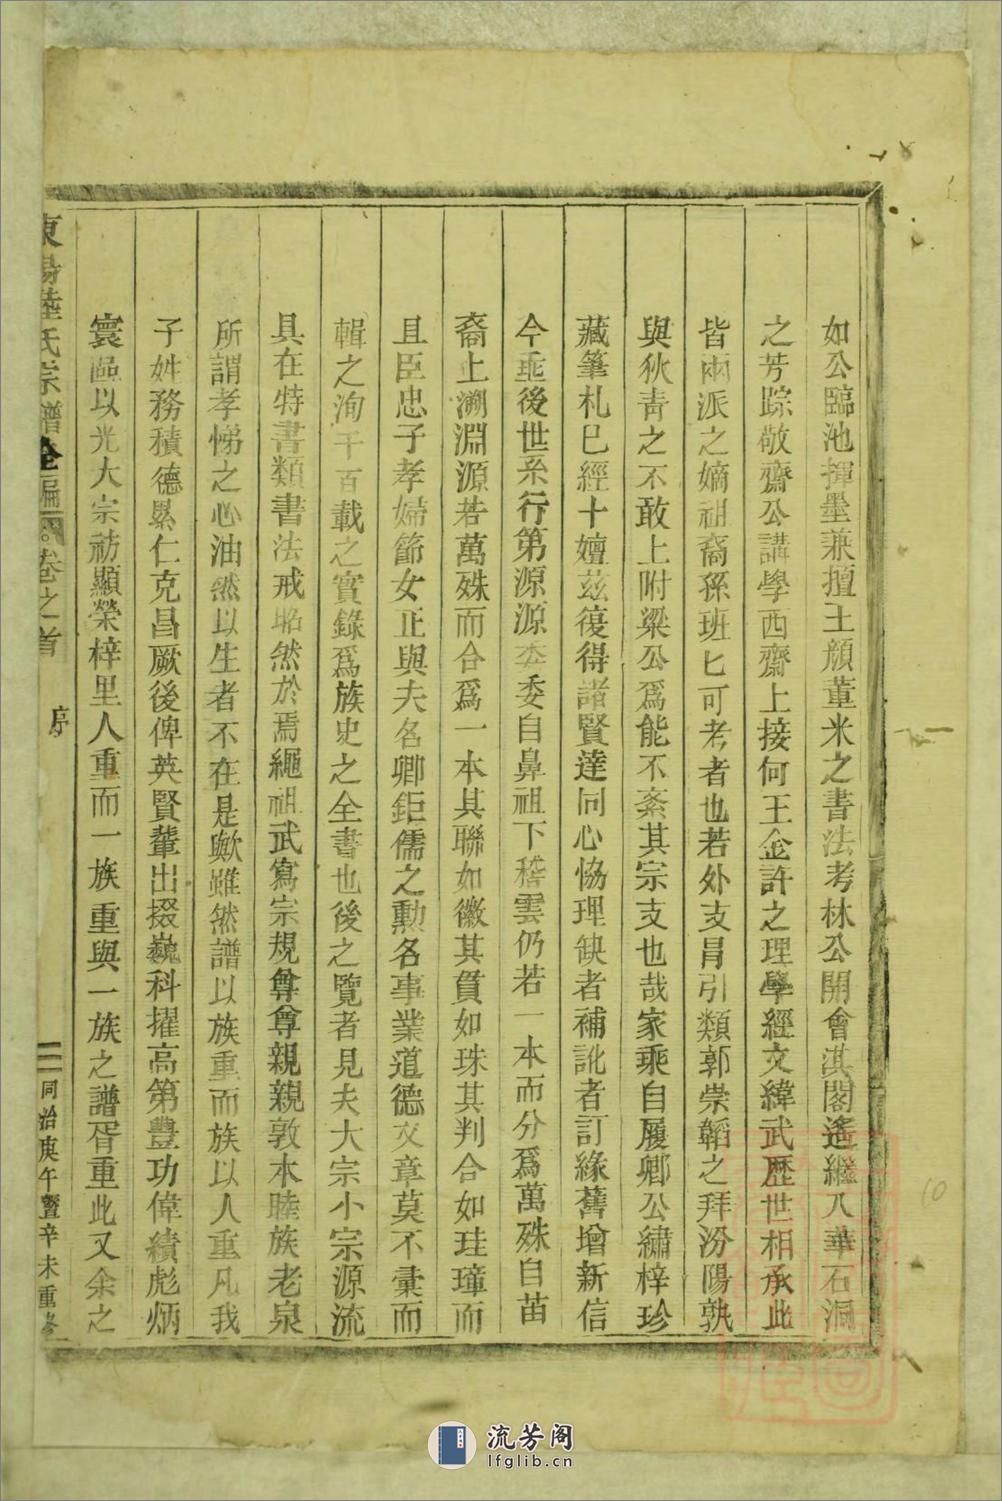 如公臨池揮墨兼擅王顔董米之書法考林公開會淇閣遙繼八華石洞
之芳踪敬齋公講學西齋上接何王金許之理學經文緯武歷世相承此
皆兩派之嫡祖裔孫班匕可考者也若外支冐引類郭崇韜之拜汾陽孰
與狄青之不敢上附梁公爲能不紊其宗支也哉家乘自履卿公繡梓珍
藏筆札已經十嬗茲復得諸賢達同心恊理缺者補訛者訂緣舊增新信
今垂後世系行第源源委委自鼻祖下稽雲仍若一本而分爲萬殊自苗
裔上溯淵源若萬殊而合爲一本其聯如徽其貫如珠其判合如珪璋而
且臣忠子孝婦節女正與夫名卿鉅儒之勳名事業道德文章莫不彙而
輯之洵千百載之實錄爲族史之全書也後之覽者見夫大宗小宗源流
具在特書類書法戒昭然於焉繩祖武寫宗規尊尊親親敦本睦族老泉
所謂孝悌之心油然以生者不在是歟雖然譜以族重而族以人重凡我
子姓務積德累仁克昌厥後俾英賢輩出掇巍科擢高第豐功偉績彪炳
寰區以光大宗祊顯榮梓里人重而一族重與一族之譜胥重此又余之
東陽陸氏宗譜全編 卷之首 序 三 同治庚午暨辛未重修
10
流芳阁
lfglib.cn